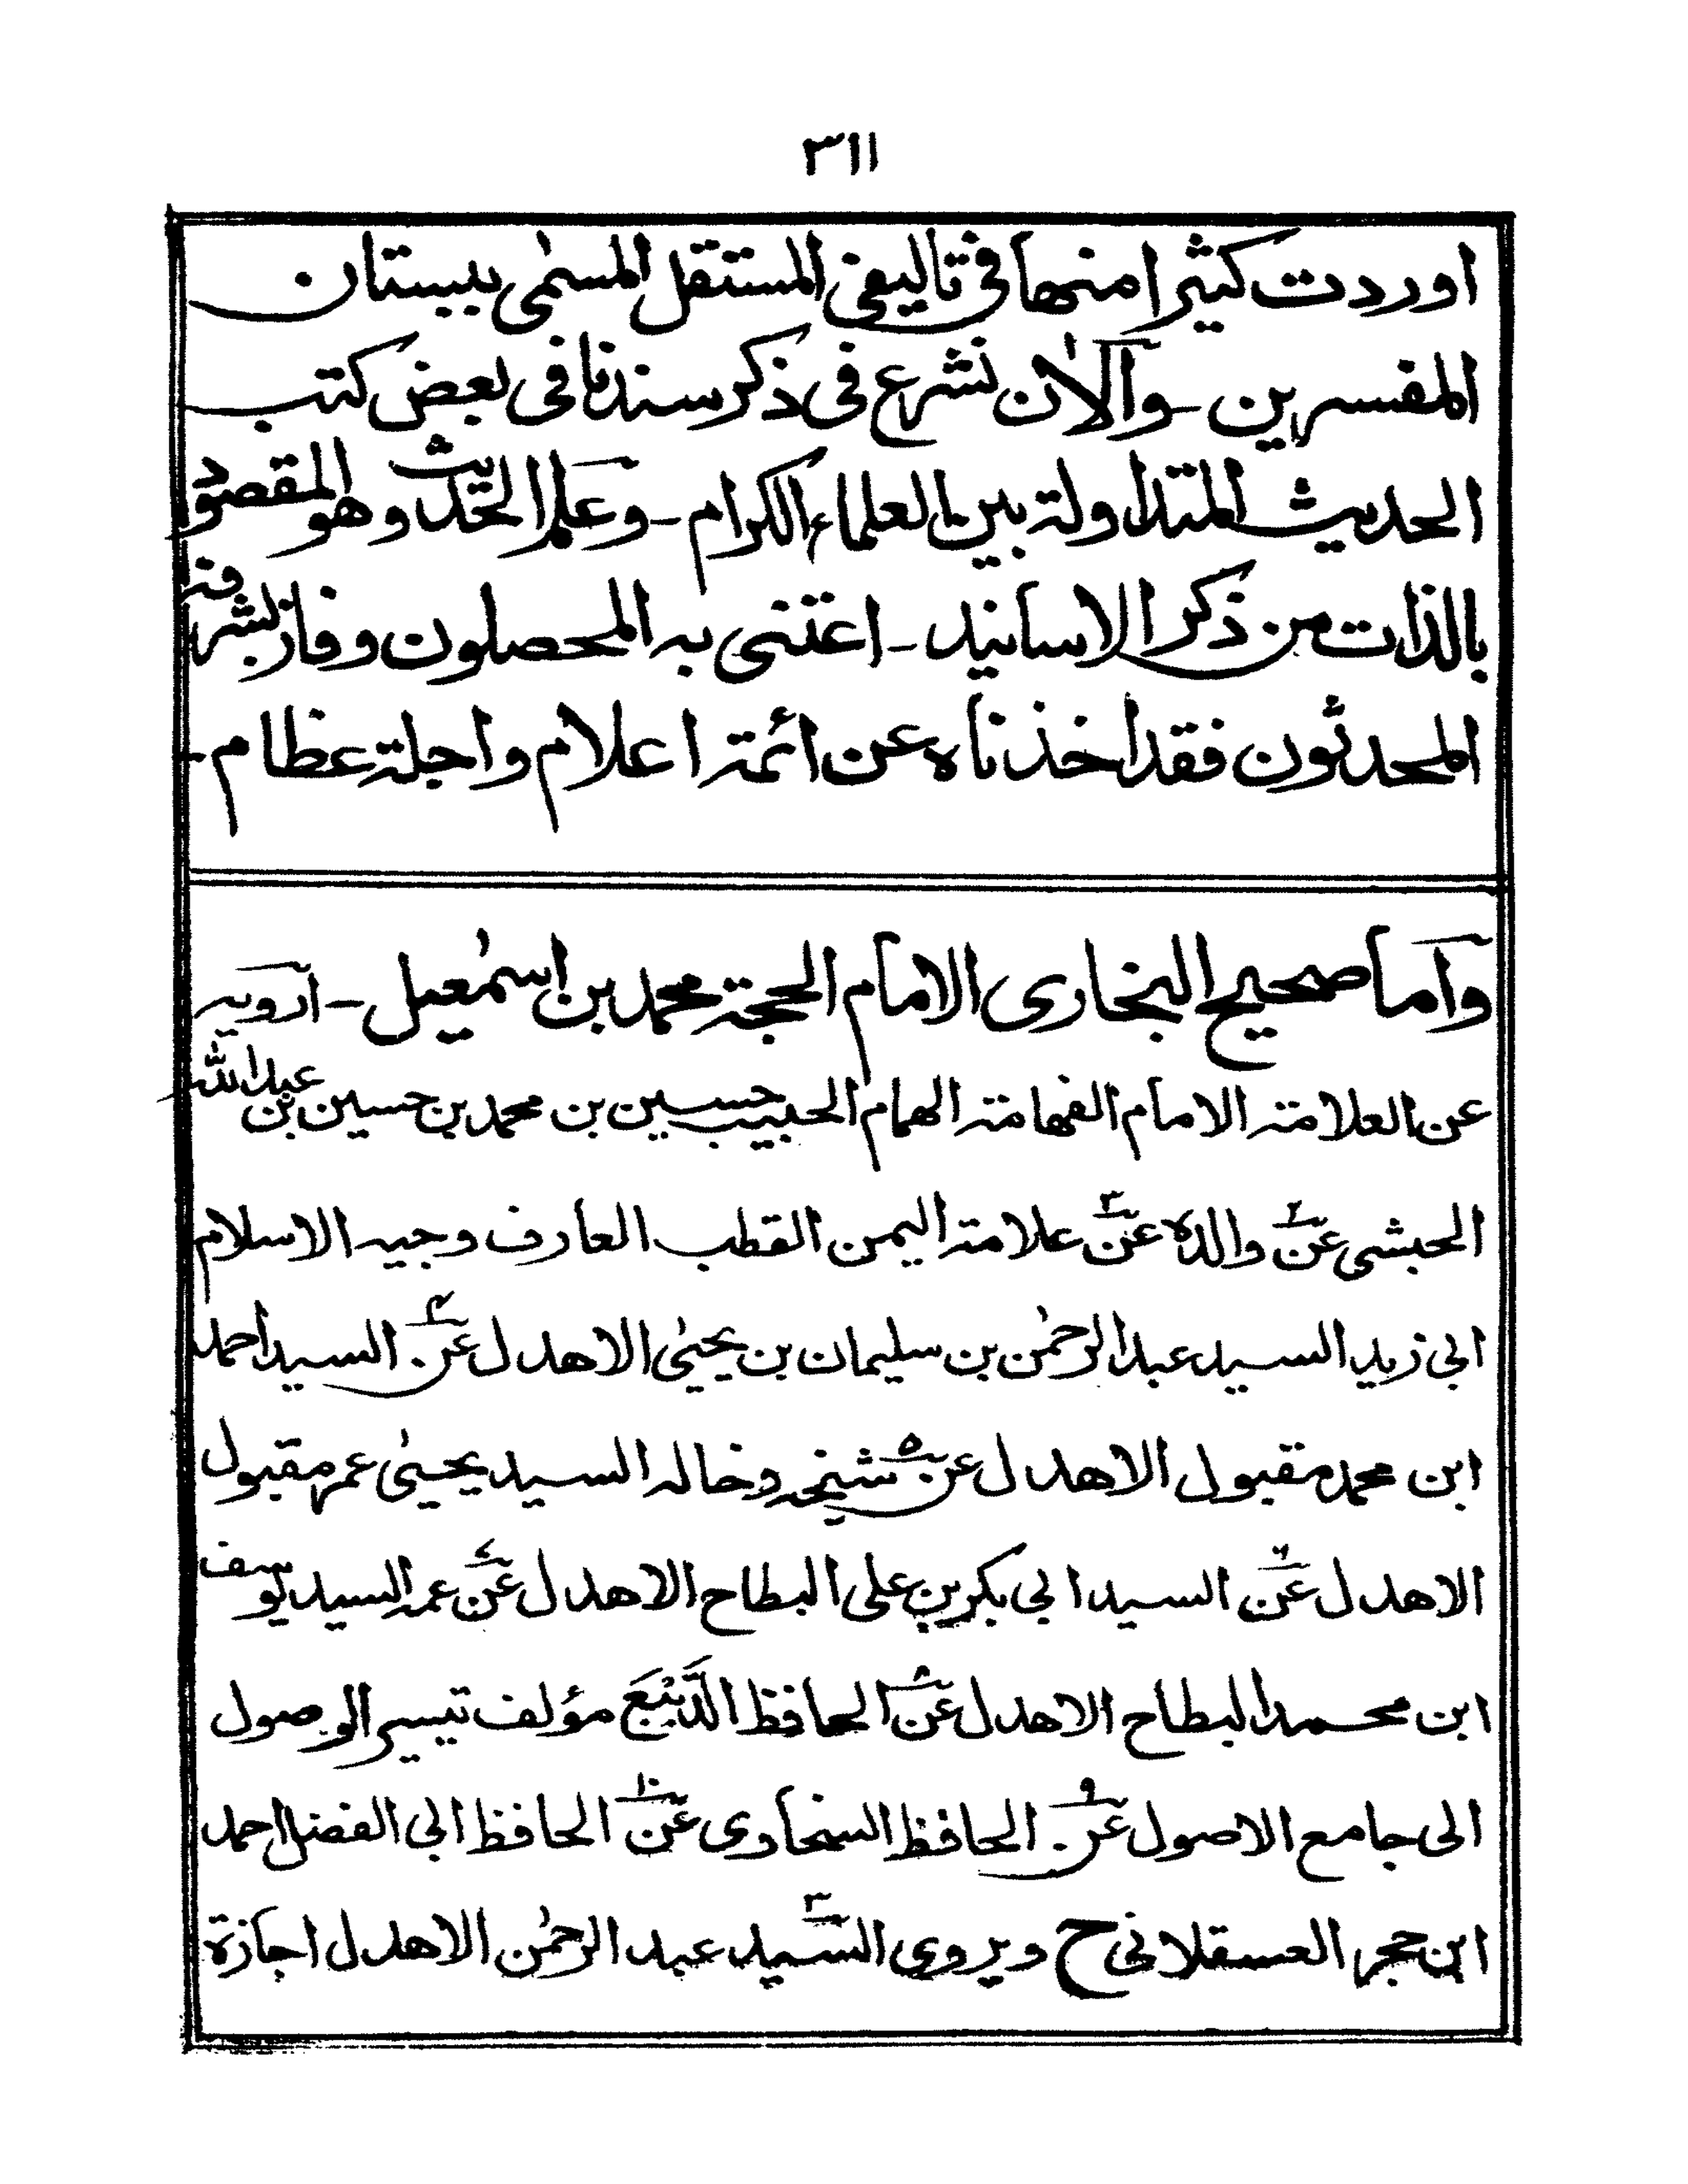 ٣١١
اوردت كثيرا منها في تاليفي المستقل المسمى ببستان
المفسرين - والآن نشرع في ذكر سندنا في بعض كتب
الحديث المتداولة بين العلماء الكرام - وعلم الحديث وهو المقصود
بالذات من ذكر الاسانيد - اعتنى به المحصلون وفاز بشرافته
المحدثون فقد اخذناه عن ائمة اعلام واجلة عظام -
وآما صحيح البخارى الامام الحجة محمد بن اسمٰعيل - آرويه
عن العلامة الامام الفهامة الهمام الحبيب حسين بن محمد بن حسين بن عبد الله
الحبشى عن٢ والده عن٣ علامة اليمن القطب العارف وجيه الاسلام
ابى زيد السيد عبد الرحمٰن بن سليمان بن يحيىٰ الاهدل عن٤ السيد احمد
ابن محمد مقبول الاهدل عن٥ شيخه وخاله السيد يحيىٰ عمر مقبول
الاهدل عن٦ السيد ابى بكر بن على البطاح الاهدل عن٧ عمه السيد يوسف
ابن محمد البطاح الاهدل عن٨ الحافظ الدَّيْبَعَ مؤلف تيسير الوصول
الى جامع الاصول عن٩ الحافظ السخاوى عن١٠ الحافظ ابى الفضل احمد
ابن حجر العسقلانى ح ويروى السيد٣ عبد الرحمٰن الاهدل اجازة